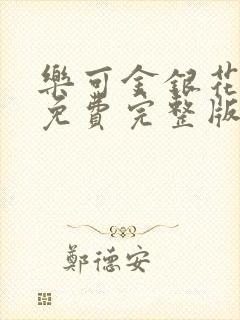 樂可金銀花
免費完整版
鄭德安